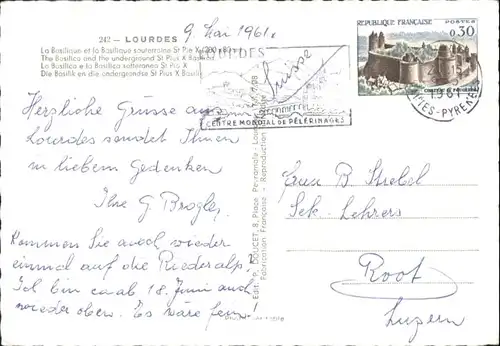 242 — LOURDES
9 Mai 1961.
La Basilique et la Basilique souterraine St Pie X (200 x 80 m)
The Basilica and the underground St Pius X Basilica
La Basilica e la Basilica sotterranea St Pie X
Die Basilik en die undergrondse St Pius X Basilik
Herzliche Grüsse aus
Lourdes sendet Ihnen
in lieben Gedenken
Ihre G. Brogles
Kommen Sie auch wieder
einmal auf die Riederalp?
Ich bin ca ab 18. Juni auch
wieder oben. Es wäre fein!
Edit. P. DOUCET, 8, Place Peyramale - Lourdes
Fabrication Française - Reproduction
RÉPUBLIQUE FRANÇAISE
POSTES
0,30
CHÂTEAU DE FOUGÈRES
CENTRE MONDIAL DE PÈLERINAGES
1961
TES-PYRÉNÉES
Suisse
B. Strebel
Sek. Lehrers
Root
Luzern